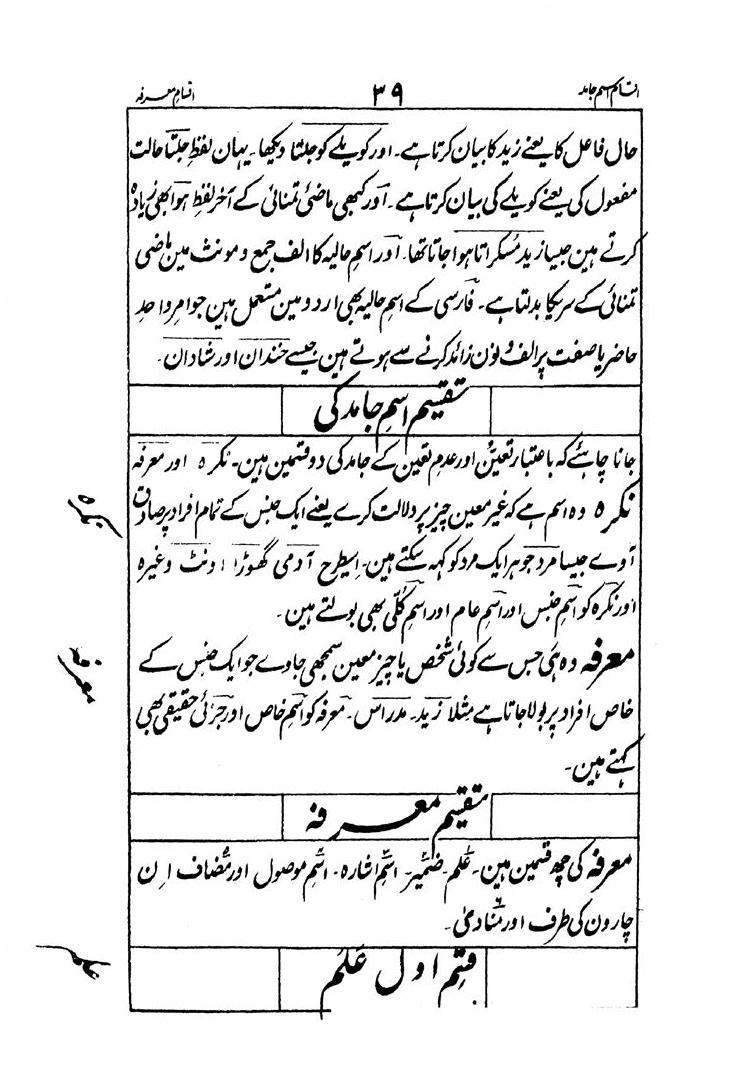 اقسام اسم جامد
۳۹
اقسام معرفہ
حال فاعل کا یعنے زید کا بیان کرتا ہے۔ اور کویلے کو جلتا دیکھا۔ یہان لفظِ جلتا حالت
مفعول کی یعنے کویلے کی بیان کرتا ہے۔ اور کبھی ماضیٔ تمنائی کے آخر لفظِ ہوا بھی زیادہ
کرتے ہین جیسا زید مُسکراتا ہوا جاتا تھا۔ اور اسمِ حالیہ کا الف جمع و مونث مین ماضی
تمنائی کے سریکا بدلتا ہے۔ فارسی کے اسمِ حالیہ بھی اردو مین مستعمل ہین جو امرِ واحدِ
حاضر یا صفت پر الف و نون زائد کرنے سے ہوتے ہین جیسے خندان اور شادان۔
تقسیم اسمِ جامد کی
جانا چاہئے کہ باعتبار تعیّن اور عدمِ تعین کے جامد کی دو قسمین ہین۔ نکرہ اور معرفہ
نکرہ
نکرہ وہ اسم ہے کہ غیر معین چیز پر دلالت کرے یعنے ایک جنس کے تمام افراد پر صادق
آوے جیسا مرد جو ہر ایک مرد کو کہہ سکتے ہین۔ اسیطرح آدمی گھوڑا اونٹ وغیرہ
اور نکرہ کو اسمِ جنس اور اسمِ عام اور اسمِ کُلّی بھی بولتے ہین۔
معرفہ
معرفہ وہ ہی جس سے کوئی شخص یا چیز معین سمجھی جاوے جو ایک جنس کے
خاص افراد پر بولا جاتا ہے مثلا زید۔ مدراس۔ معرفہ کو اسمِ خاص اور جزئی حقیقی بھی
کہتے ہین۔
تقسیم معرفہ
معرفہ کی چھ قسمین ہین۔ علم۔ ضمیر۔ اسمِ اشارہ۔ اسمِ موصول اور مُضاف اِن
چارون کی طرف اور منادیٰ۔
علم
قسمِ اول عَلَم